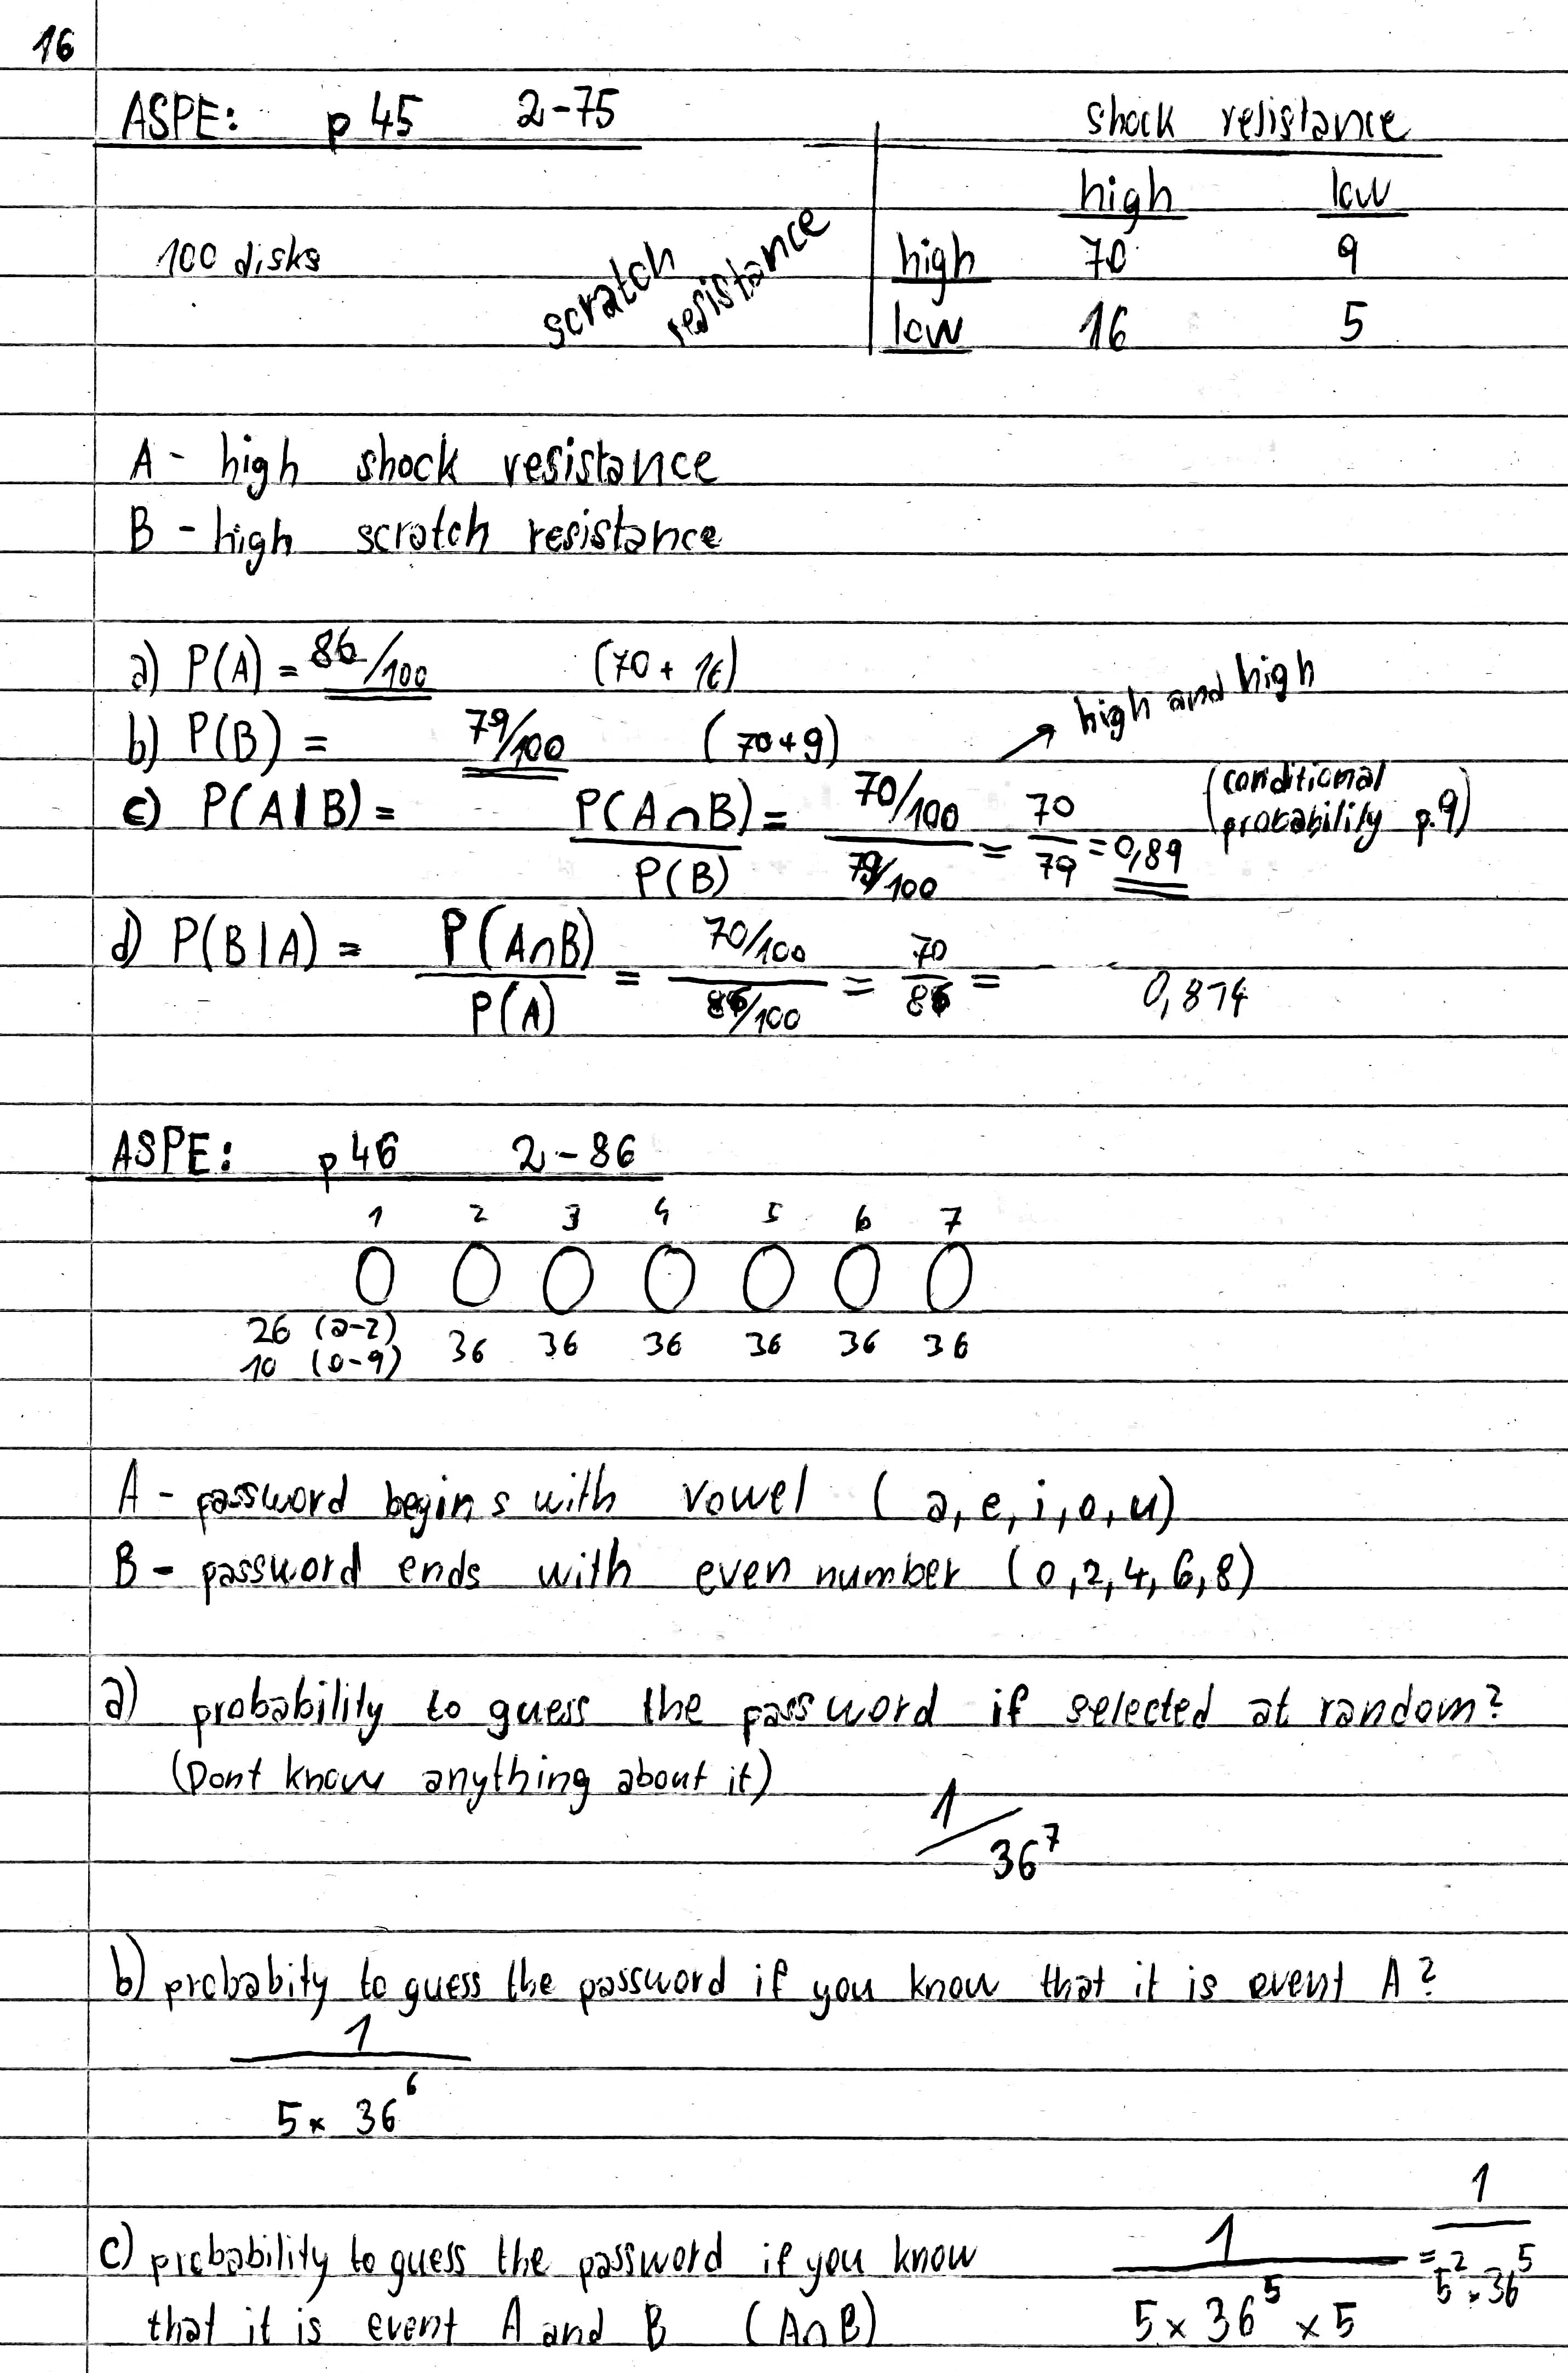 16
ASPE: p 45 2-75 shock resistance
high low
100 disks scratch resistance high 70 9
low 16 5
A - high shock resistance
B - high scratch resistance
a) P(A) = 86/100 (70 + 16)
high and high
b) P(B) = 79/100 (70+9)
c) P(A|B) = P(A∩B)/P(B) = (70/100)/(79/100) = 70/79 = 0,89 (conditional probability p.9)
d) P(B|A) = P(A∩B)/P(A) = (70/100)/(86/100) = 70/86 = 0,814
ASPE: p 46 2-86
1 2 3 4 5 6 7
26 (a-z) 36 36 36 36 36 36
10 (0-9)
A - password begins with vowel (a, e, i, o, u)
B - password ends with even number (0,2,4,6,8)
a) probability to guess the password if selected at random?
(Dont know anything about it)
1/36⁷
b) probabity to guess the password if you know that it is event A?
1/(5 × 36⁶)
c) probability to guess the password if you know
that it is event A and B (A∩B) 1/(5 × 36⁵ × 5) = 1/(5² × 36⁵)